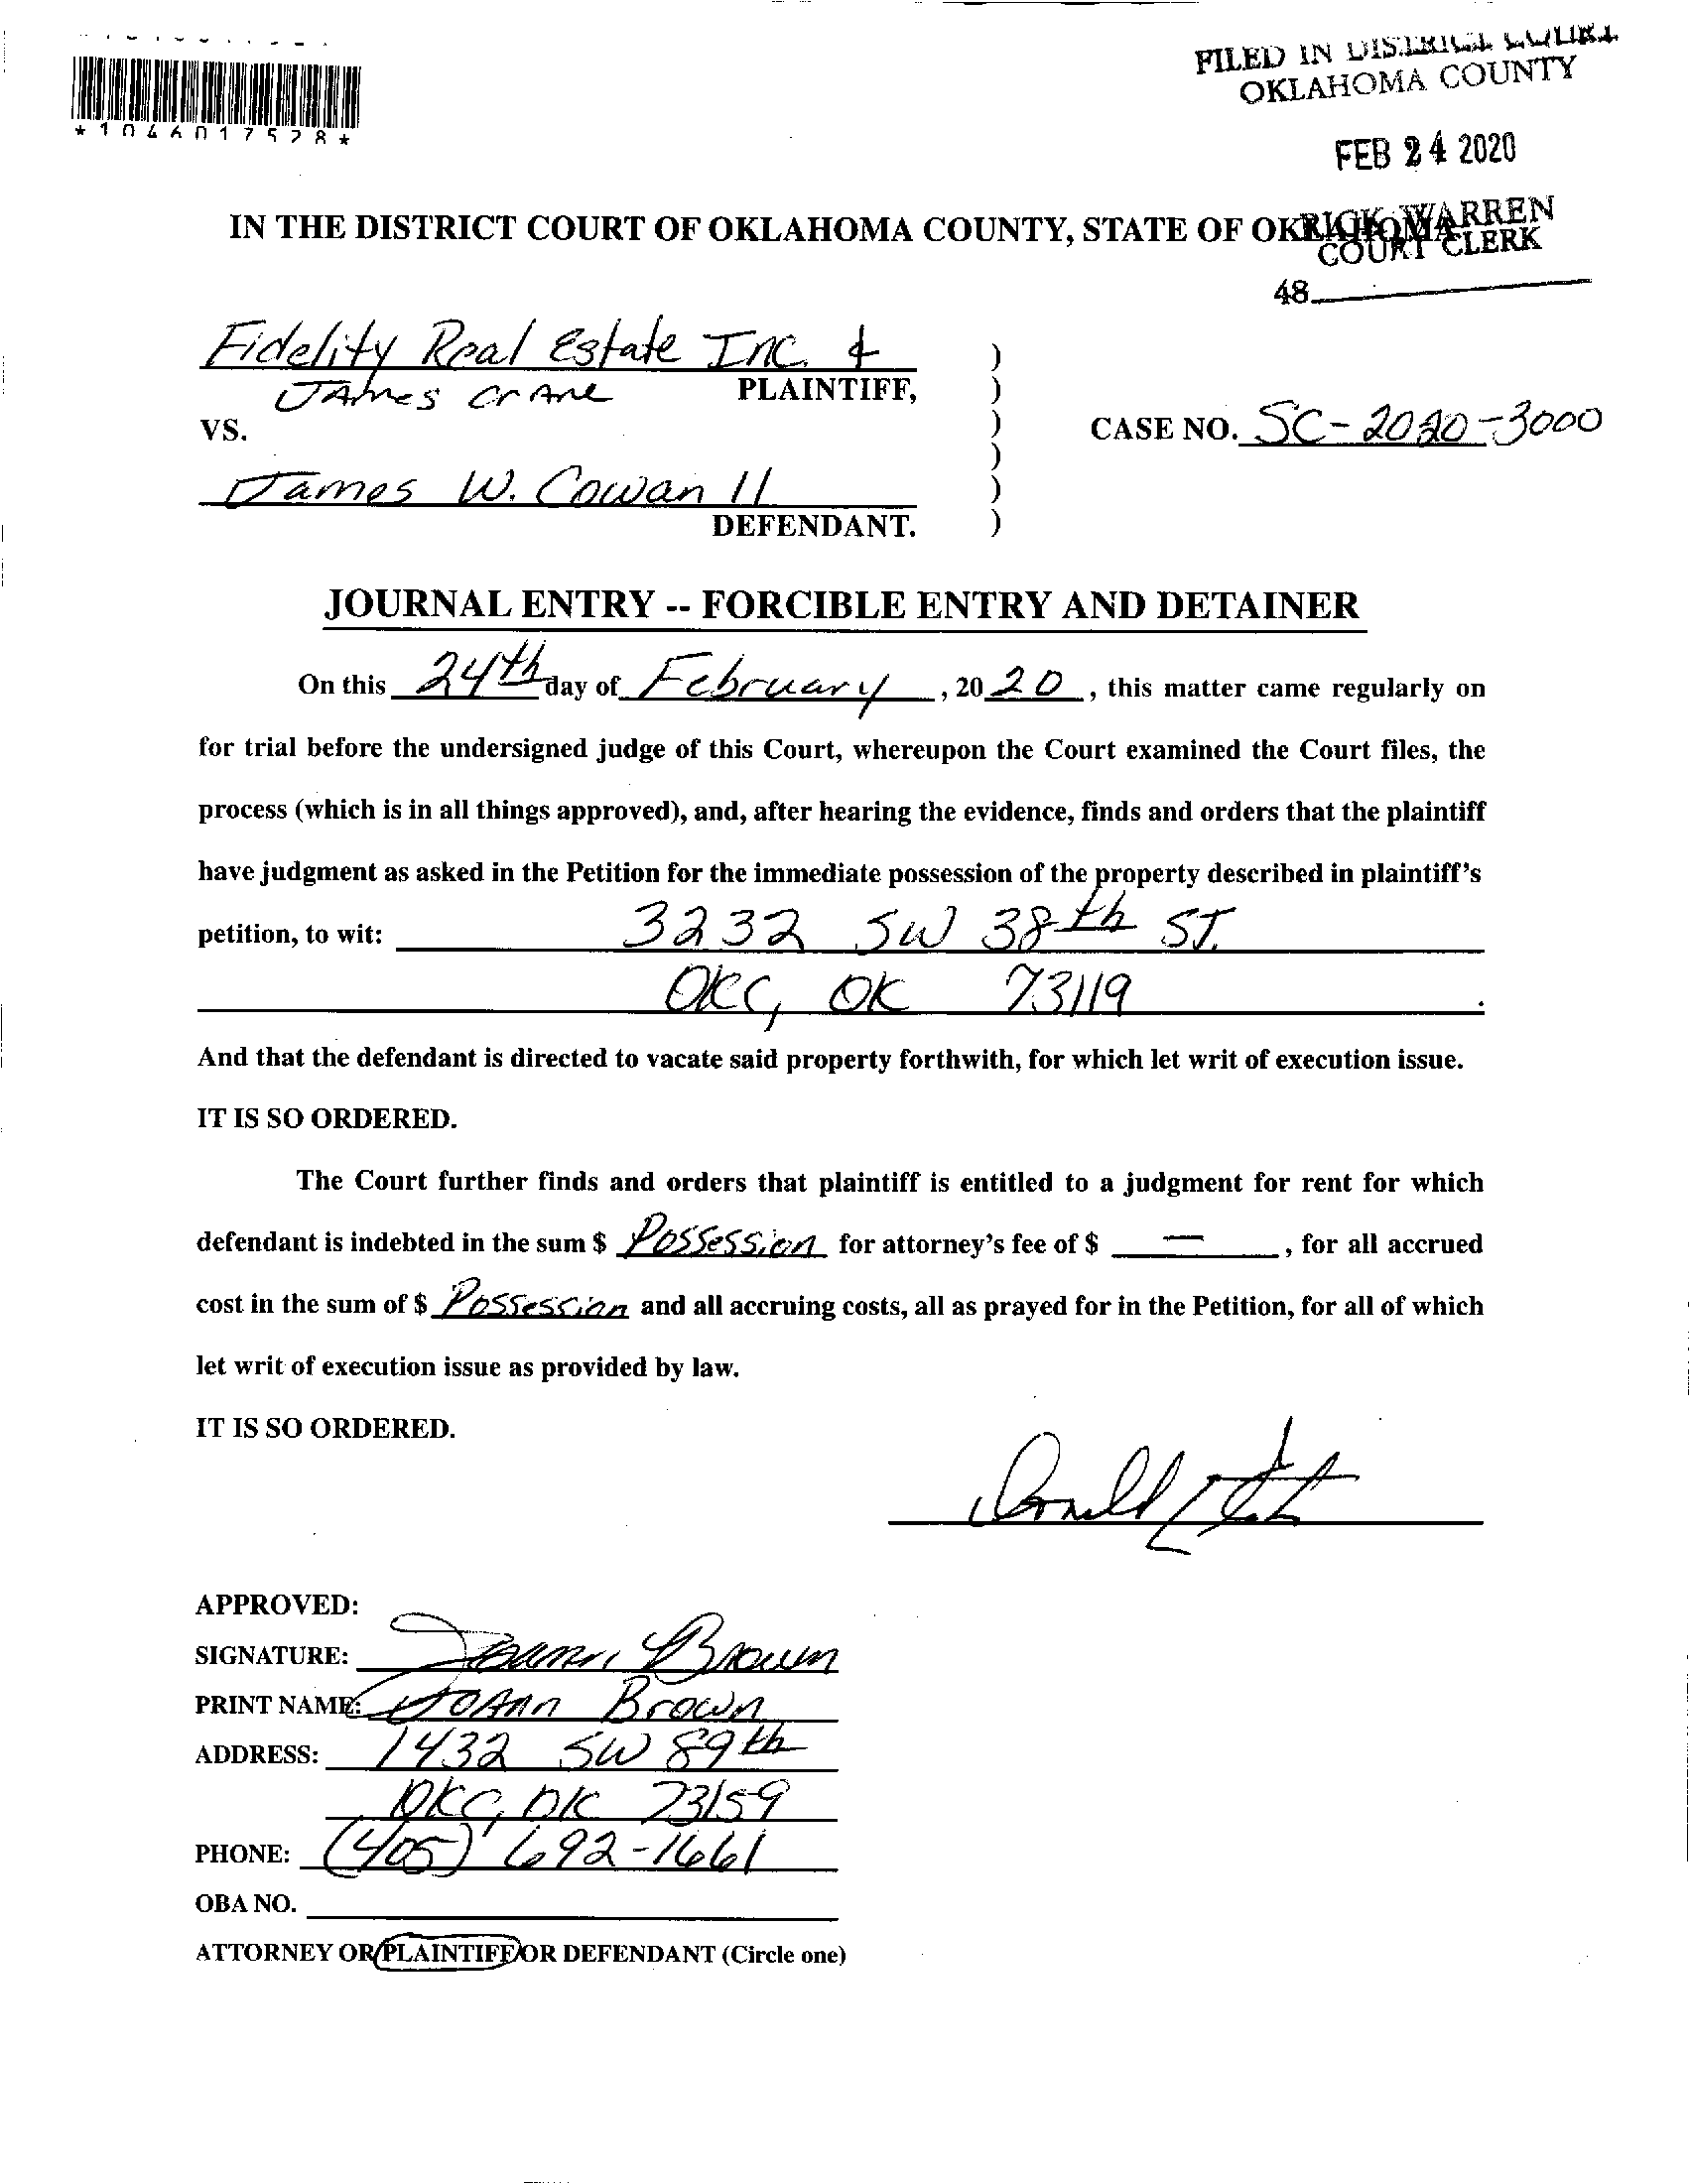 FILED IN DISTRICT COURT
OKLAHOMA COUNTY
*1046017528*
FEB 24 2020
RICK WARREN
COURT CLERK
48
IN THE DISTRICT COURT OF OKLAHOMA COUNTY, STATE OF OKLAHOMA
Fidelity Real Estate Inc. &
James Crane PLAINTIFF, )
VS. CASE NO. SC-2020-3000
James W. Cowan II
DEFENDANT. )
JOURNAL ENTRY -- FORCIBLE ENTRY AND DETAINER
On this 24th day of February, 2020, this matter came regularly on
for trial before the undersigned judge of this Court, whereupon the Court examined the Court files, the
process (which is in all things approved), and, after hearing the evidence, finds and orders that the plaintiff
have judgment as asked in the Petition for the immediate possession of the property described in plaintiff's
petition, to wit: 3232 SW 38th ST.
OKC, OK 73119.
And that the defendant is directed to vacate said property forthwith, for which let writ of execution issue.
IT IS SO ORDERED.
The Court further finds and orders that plaintiff is entitled to a judgment for rent for which
defendant is indebted in the sum $ Possession for attorney's fee of $ —, for all accrued
cost in the sum of $ Possession and all accruing costs, all as prayed for in the Petition, for all of which
let writ of execution issue as provided by law.
IT IS SO ORDERED.
APPROVED:
SIGNATURE: Joann Brown
PRINT NAME: JoAnn Brown
ADDRESS: 1432 SW 89th
OKC, OK 73159
PHONE: (405) 692-1661
OBA NO.
ATTORNEY OR PLAINTIFF OR DEFENDANT (Circle one)